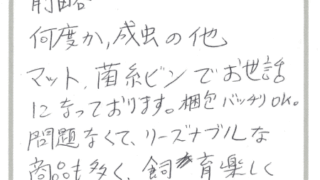 前略
何度か,成虫の他
マット,菌糸ビンでお世話
になっております。梱包バッチリOK。
問題なくて、リーズナブルな
商品も多く、飼育楽しく